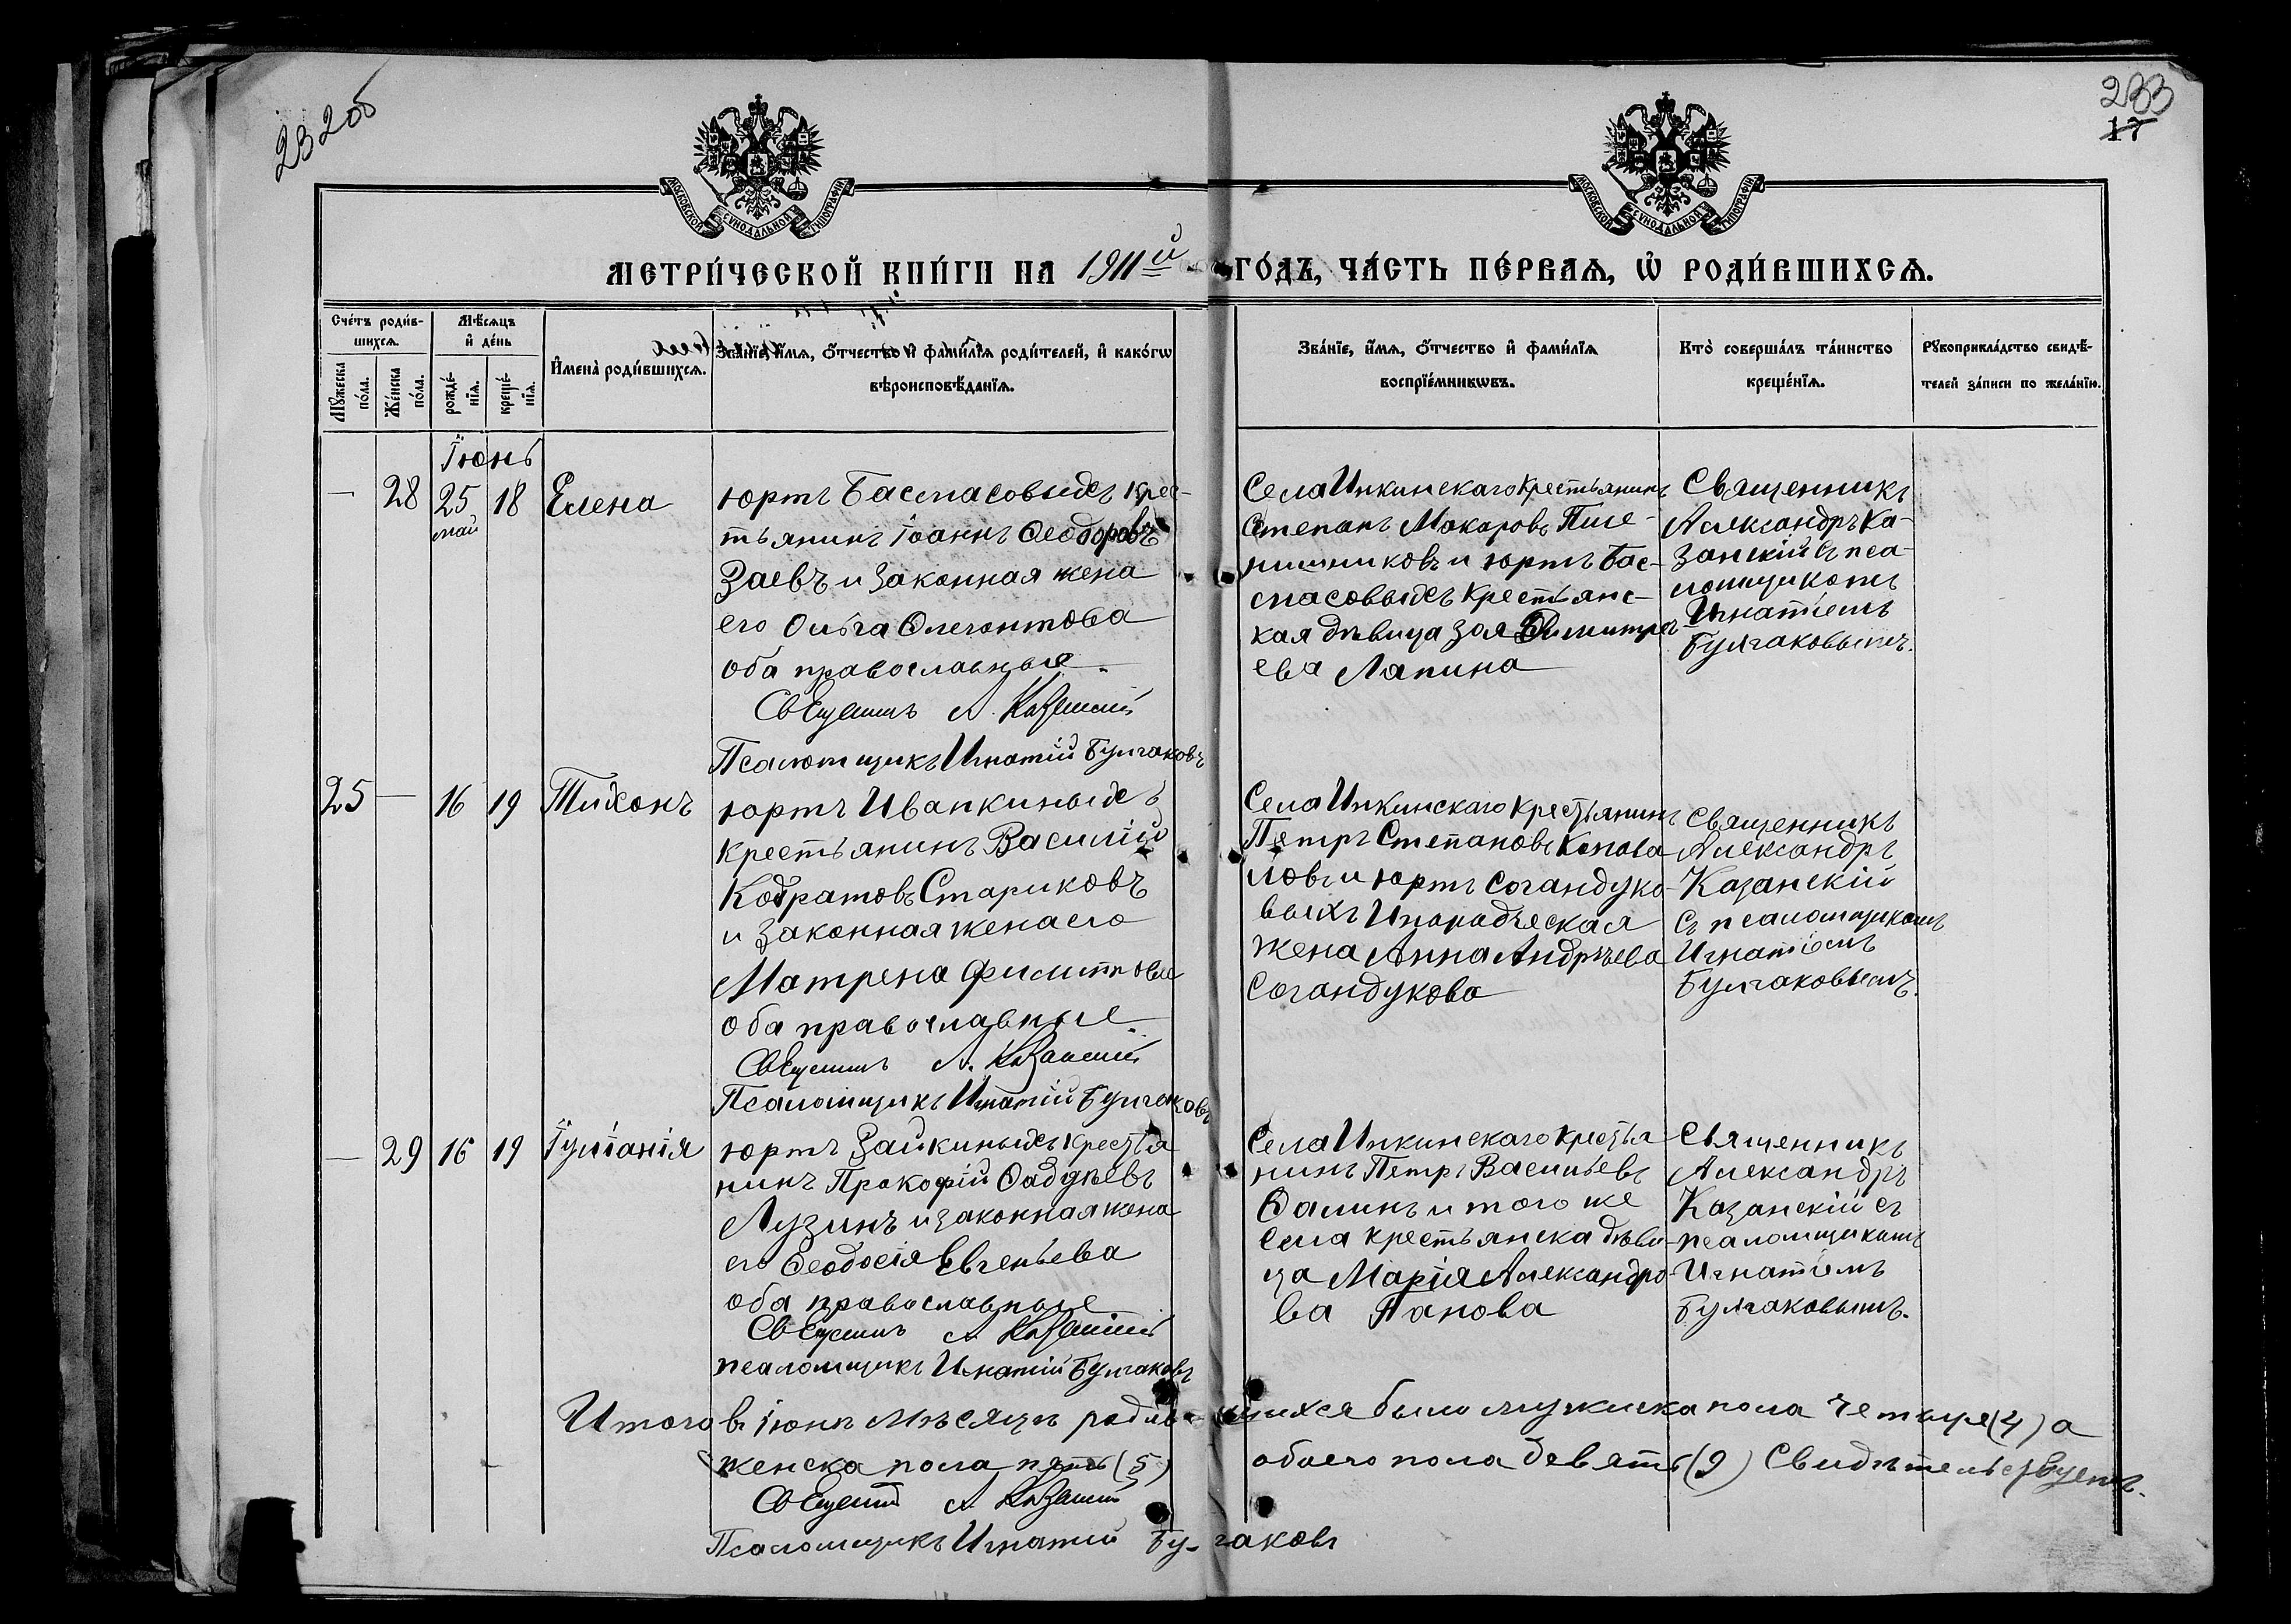 232об
233
17
МОСКОВСКОЙ СѴНОДАЛЬНОЙ ТИПОГРАФІИ
МОСКОВСКОЙ СѴНОДАЛЬНОЙ ТИПОГРАФІИ
МЕТРИ́ЧЕСКОЙ КНИ́ГИ НА 1911й ГО́ДЪ, ЧА́СТЬ ПЕ́РВАѦ, Ѡ҆ РОДИ́ВШИХСѦ.
Сче́тъ роди́в-
шихсѧ.
Мꙋ́жеска по́ла.
Же́нска по́ла.
Мѣ́сѧцъ
и҆ де́нь
рожде́-
нїѧ.
креще́-
нїѧ.
И҆мена̀ роди́вшихсѧ.
Зва́нїе, и҆́мѧ, ѻ҆́тчество и҆ фами́лїѧ роди́телей, и҆ како́гѡ
вѣроисповѣ́данїѧ.
Зва́нїе, и҆́мѧ, ѻ҆́тчество и҆ фами́лїѧ
воспрїе́мникѡвъ.
Кто̀ соверша́лъ та́инство
креще́нїѧ.
Рꙋкоприкла́дство свидѣ́-
телей за́писи по жела́нїю.
Іюнь
— 28 25 май 18 Елена
юртъ Басмасовыхъ крес-
тьянинъ Іоаннъ Ѳеодоровъ
Заевъ и законная жена
его Ольга Олегонтова
оба православные.
Священникъ А. Казанскій
Псаломщикъ Игнатій Булгаковъ
Села Инкинскаго крестьянинъ
Степанъ Макаровъ Пше-
ничниковъ и юртъ Бас-
масовыхъ крестьянс-
кая дѣвица Зоя Димитрі-
ева Лапина
Священникъ
Александръ Ка-
занскій съ пса-
ломщикомъ
Игнатіемъ
Булгаковымъ.
25 — 16 19 Тихонъ
юртъ Иванкиныхъ
крестьянинъ Василій
Кодратовъ Стариковъ
и законная жена его
Матрена Филиппова
оба православные.
Священникъ А. Казанскій
Псаломщикъ Игнатій Булгаковъ
Села Инкинскаго крестьянинъ
Петръ Степановъ Конова-
ловъ и юртъ Согандуко-
выхъ Инородческая
жена Анна Андрѣева
Согандукова
Священникъ
Александръ
Казанскій
съ псаломщикомъ
Игнатіемъ
Булгаковымъ.
— 29 16 19 Іуліанія
юртъ Зайкиныхъ крестья
нинъ Прокофій Ѳадѣевъ
Лузинъ и законная жена
его Ѳеодосія Евгеньева
оба православные
Священникъ А. Казанскій
псаломщикъ Игнатій Булгаковъ
Села Инкинскаго крестья-
нинъ Петръ Васильевъ
Ѳаминъ и того же
села крестьянска дѣви-
ца Марія Александро-
ва Панова
Священникъ
Александръ
Казанскій съ
псаломщикомъ
Игнатіемъ
Булгаковымъ.
Итого въ іюнѣ мѣсяцѣ родившихся было мужиска пола четыре (4) а
женска пола пять (5) обоего пола девять (9) Свидѣтельствуемъ.
Священникъ А. Казанскій
Псаломщикъ Игнатій Булгаковъ